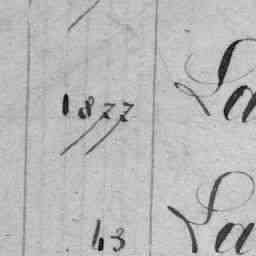 1877 La
43 La